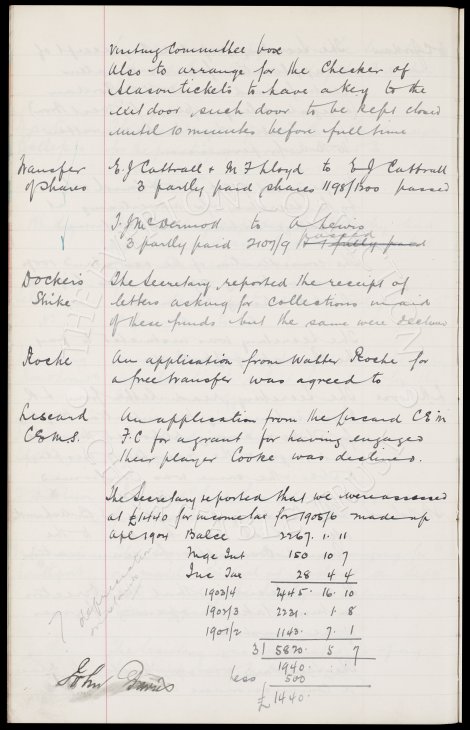 Visiting Committee box
Also to arrange for the Checker of
Season tickets to have a key to the
exit door, such door to be kept closed
until 10 minutes before full time
Transfer of Shares
E J Cattrall & M F Lloyd to E J Cattrall
3 partly paid shares 1198/1200 passed
T. J. McDermod to A Lewis
3 partly paid 2107/9 passed
Dockers Strike
The Secretary reported the receipt of
letters asking for collections in aid
of these funds but the same were declined
Roche
An application from Walter Roche for
a free transfer was agreed to
Liscard
C.E.M.S.
An application from the Liscard C E M
F.C for a grant for having engaged
their player Cooke was declined.
The Secretary reported that we were assessed
at £1440 for income tax for 1905/6 made up
Apl 1904 Balce 2267. 1. 11
Mge Int 150 10 7
Inc Tax 28 4 4
1903/4 2445. 16. 10
1902/3 2231. 1. 8
1901/2 1143. 7. 1
3) 5820. 5 7
1940 . .
less 500
£1440.
? depreciation
John Davies